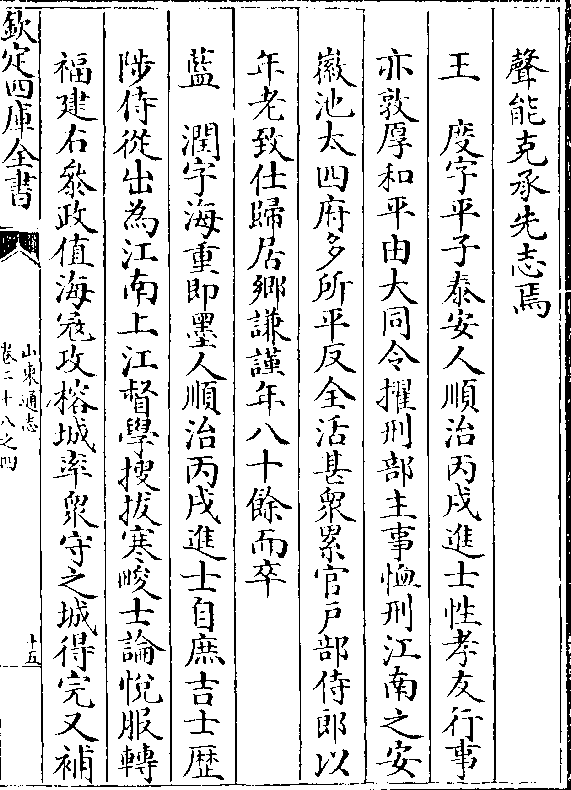 聲能克承先志焉
王　度字平子泰安人順治丙戌進士性孝友行事
亦敦厚和平由大同令擢刑部主事恤刑江南之安
徽池太四府多所平反全活甚衆累官戸部侍郎以
年老致仕歸居鄉謙謹年八十餘而卒
藍　潤字海重即墨人順治丙戌進士自庶吉士歴
陟侍從出為江南上江督學搜拔寒畯士論悅服轉
福建右叅政值海冦攻榕城率衆守之城得完又補
欽定四庫全書
山東通志
卷二十八之四
十五